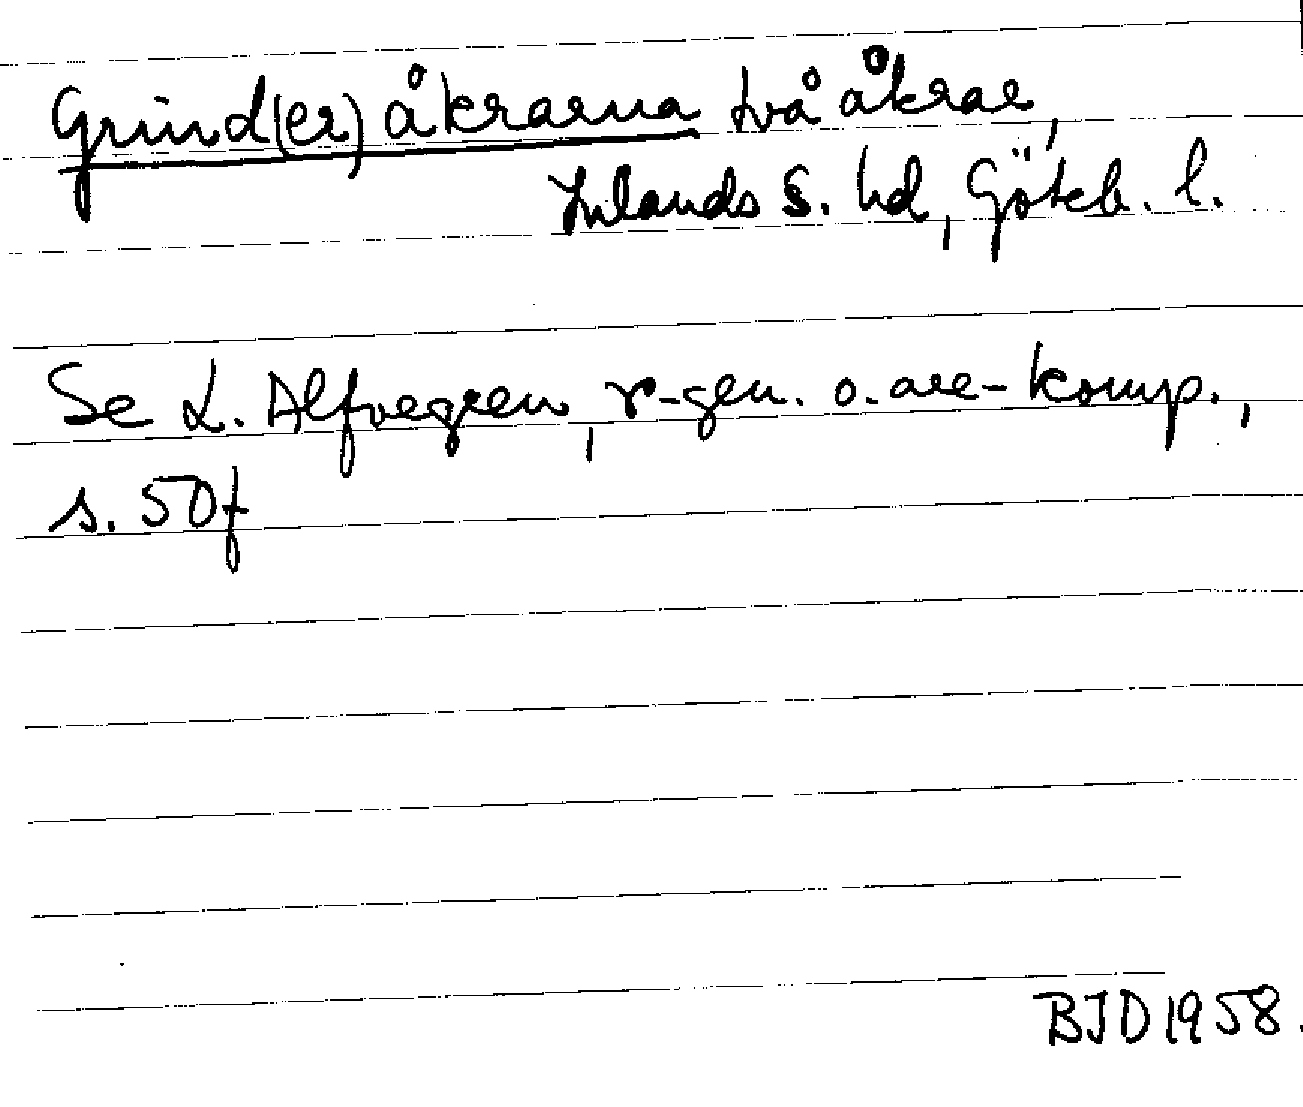 Grind(er)åkrarna två åkrar,
Inlands S. hd, Göteb. l.
Se L. Alfvegren, r-gen. o. are-komp.,
s. 50f
BJD 1958.